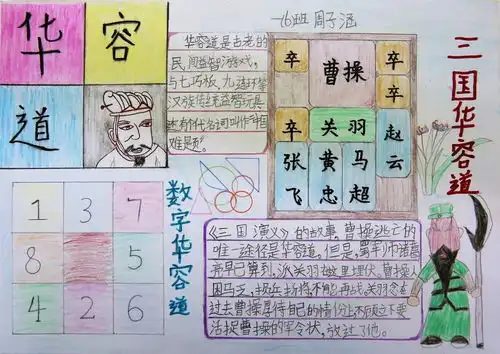 一6班 周子涵
华 容
道
华容道是古老的
民间益智游戏,
与七巧板、九连环等
汉族传统益智玩具
还有个代名词叫作"中国
难题"
卒 曹操 卒
卒
卒 关羽 赵云
张飞 黄忠 马超
三国华容道
1 3 7
8 5
4 2 6
数字华容道
《三国演义》的故事,曹操逃亡的
唯一途径是华容道。但是,蜀军师诸葛
亮早已算到,派关羽在这里埋伏,曹操人
困马乏,损兵折将不能再战,关羽念
过去曹操厚待自己的情份上不顾立下要
活捉曹操的军令状,放过了他。